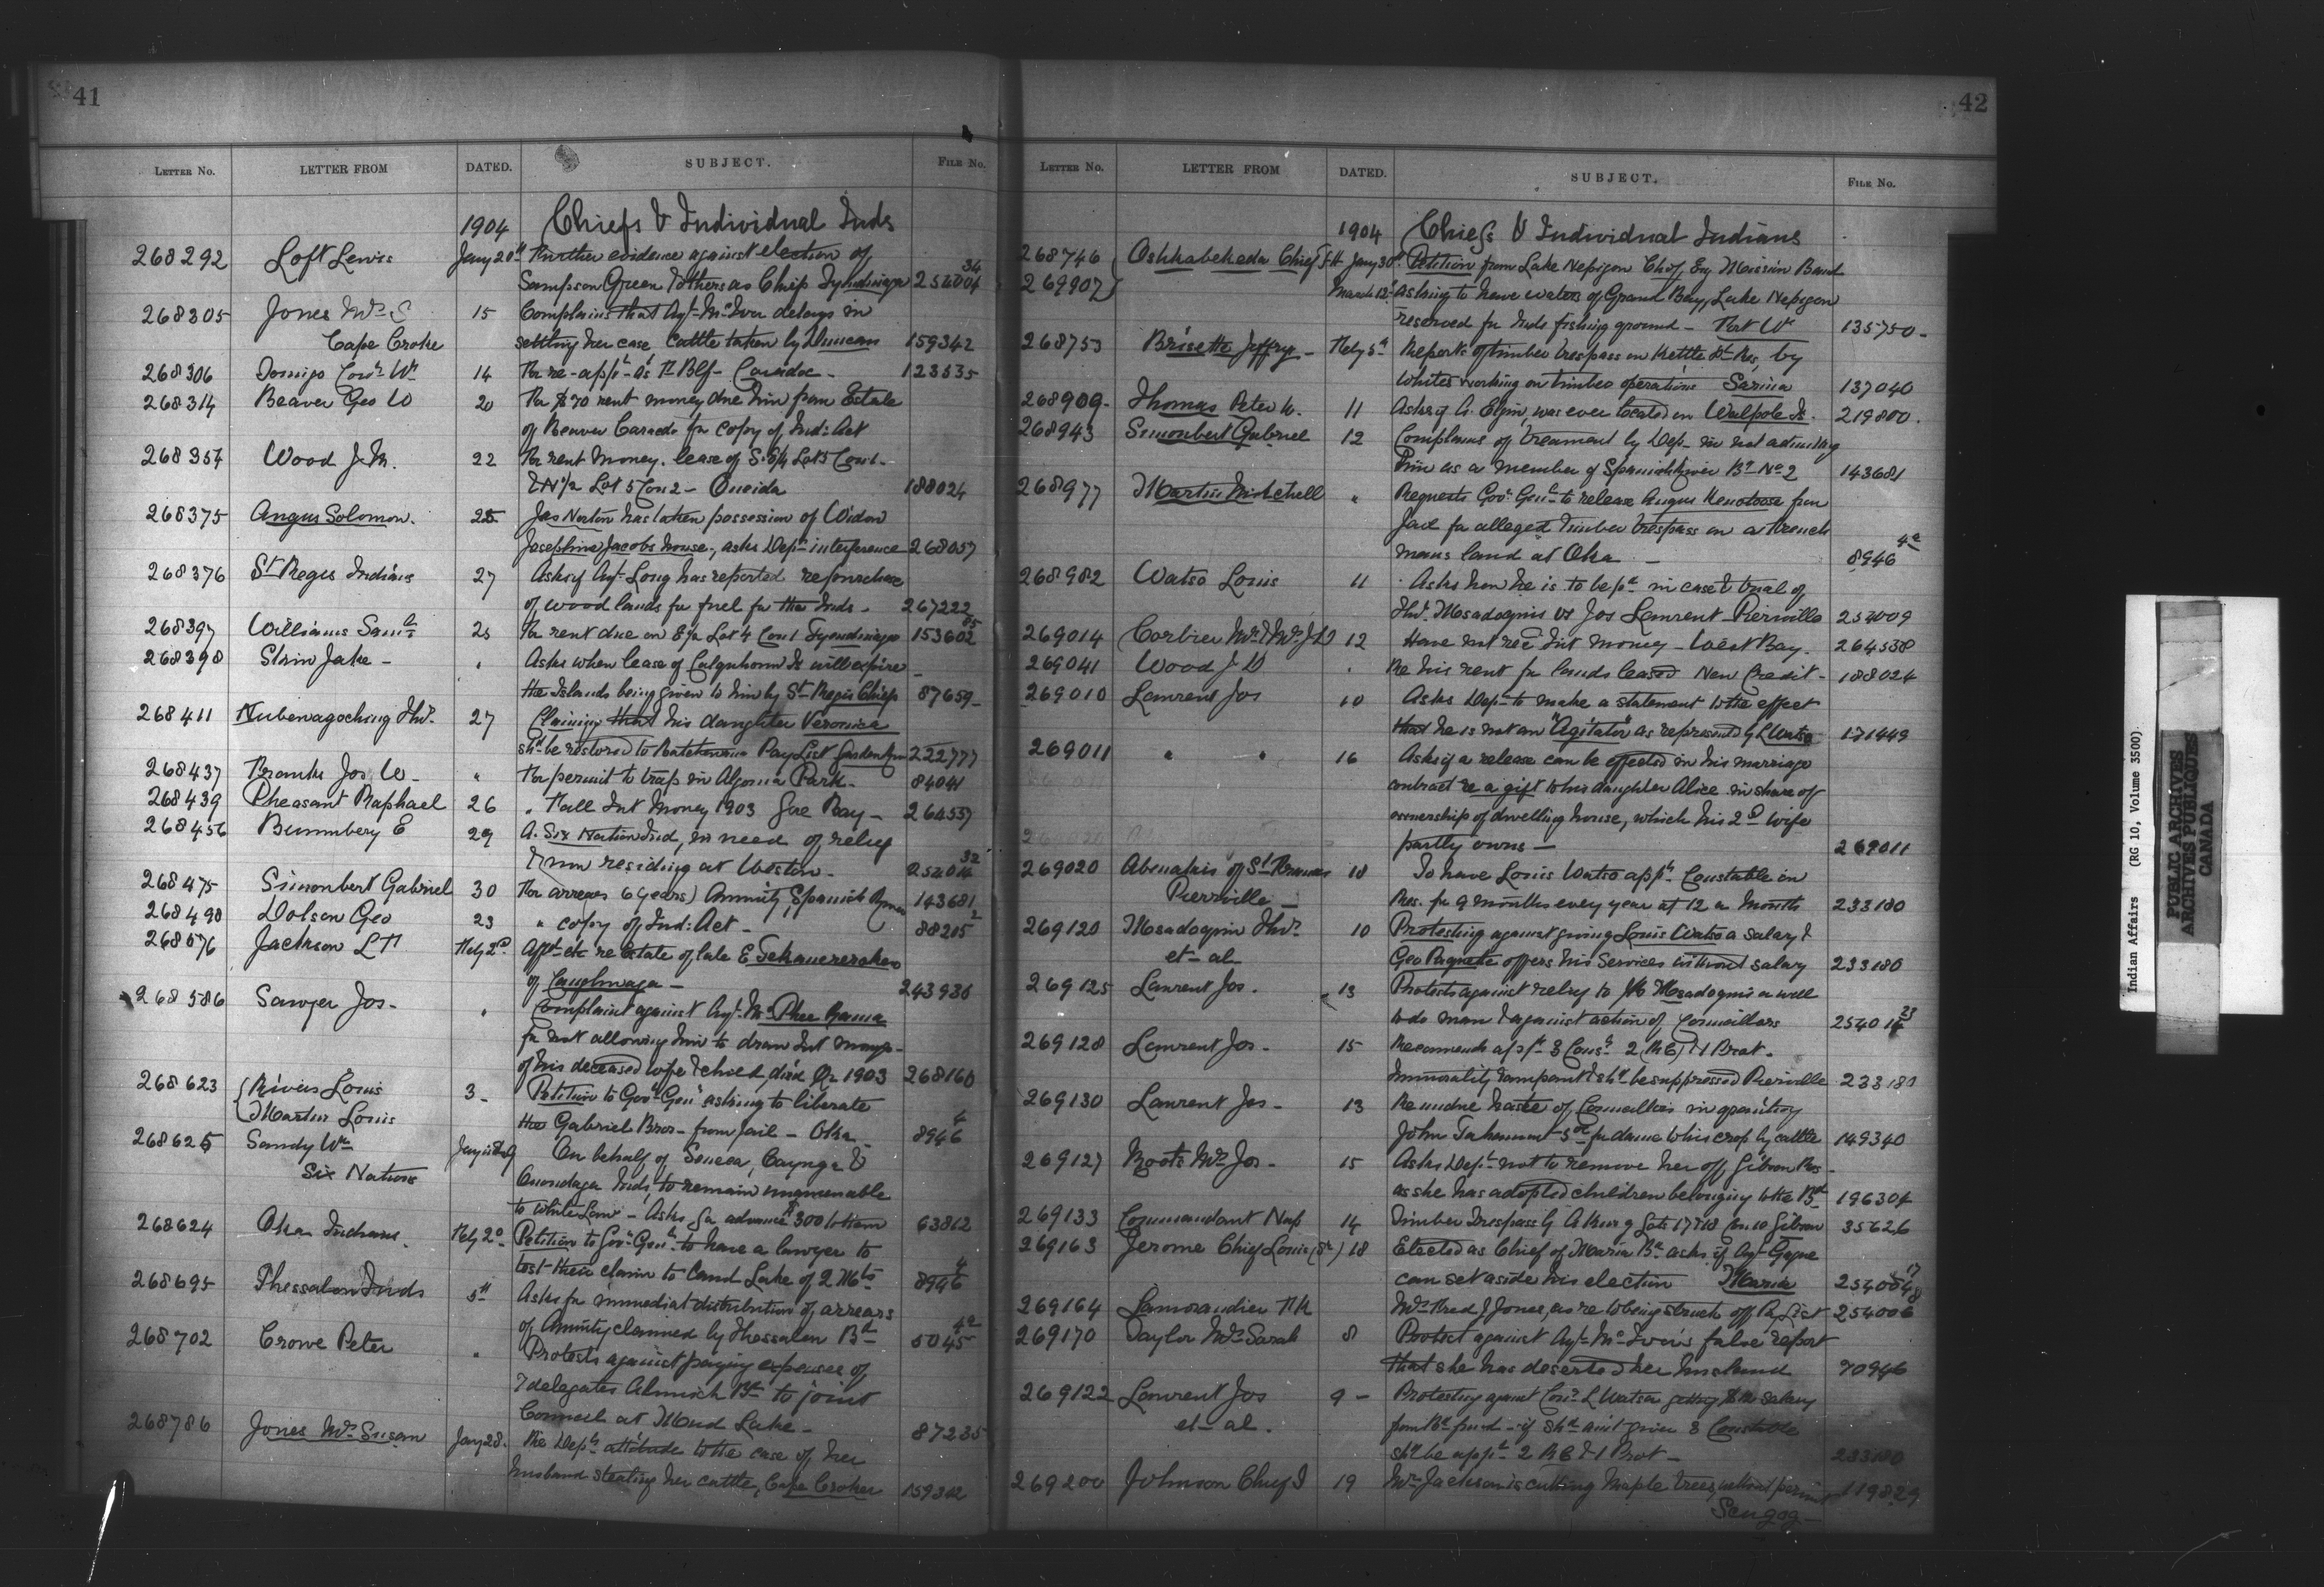 41
LETTER No. LETTER FROM DATED. SUBJECT. FILE No.
1904 Chiefs & Individual Inds
268292 Loft Lewis Jany 20th Further evidence against election of
Sampson Green & others as Chiefs Tyendinaga 254004 34
268305 Jones Mrs S 15 Complains that Agt McIver delays in
Cape Croke settling her case Cattle taken by Duncan 159342
268306 14 For re-appt as Caradoc - 123535
268314 Beaver Geo W 20 For $70 rent money due him from Estate
of Beaver for copy of Ind: Act
268357 Wood J. 22 For rent money. lease of Lot 5 Con 1 -
& N 1/2 Lot 5 Con 2 - Oneida 188024
268375 Angus Solomon. 25 Jas Norton has taken possession of Widow
Josephine Jacobs house, asks Dept interference 268057
268376 St Regis Indians 27 Asks if Agt Long has reported re purchase
of wood lands for fuel for the Inds - 267222
268397 Williams Saml 25 For rent due on Lot 4 Con 1 Tyendinaga 153602 85
268398 Jake - " Asks when lease of Colquhoun Is will expire -
the Islands being given to him by St Regis Chiefs 87659 -
268411 Nubenagoching Thos. 27 Claiming that his daughter Veronica
shd be restored to Batchewana Pay List Garden River 222777
268437 Franks Jos W - " For permit to trap in Algoma Park - 84041
268439 Pheasant Raphael 26 " Fall Int Money 1903 Gore Bay - 264557
268456 Bumbery E 29 A Six Nation Ind, in need of relief
& now residing at Weston - 254014 32
268475 Simonbert Gabriel 30 For arrears 6 years) Annuity, Spanish River 143681
268490 Dolson Geo 23 " copy of Ind: Act - 88205 2
268576 Jackson L Feby 2d re Estate of late E
of Caughnaga - 243936
268586 Sawyer Jos - " Complaint against Agt McPhee Rama
for not allowing him to draw Int money -
of his deceased wife & child, died 1903 268160
268623 Rivers Louis 3 - Petition to Govr Genl asking to liberate
Martin Louis the Gabriel Bros - from jail - Oka - 8946 4
268625 Sandy Wm Jany On behalf of Seneca, Cayuga &
Six Nations Onondaga Inds, to remain unamenable
to White Law - Asks for advance $300 to them 63812
268624 Oka Indians. Feby 2d Petition to Govr Genl to have a lawyer to
test their claim to Land Lake of 2 Mts 8946 4
268695 Thessalon Inds 5th Asks for immediate distribution of arrears
of Annuity claimed by Thessalon Bd 5045 42
268702 Crowe Peter " Protests against paying expenses of
7 delegates Alnwick Bd to joint
Council at Mud Lake - 87235
268786 Jones Mrs Susan Jany 28. Re Depts attitude to the case of her
husband stealing her cattle, Cape Croker 159342
42
LETTER No. LETTER FROM DATED. SUBJECT. FILE No.
1904 Chiefs & Individual Indians
268746 Chief Jany 30th Petition from Lake Nepigon Chief, Eng Mission Band
269907 March 12 asking to have waters of Grand Bay, Lake Nepigon
reserved for Inds fishing ground - Fort Wm 135750 -
268753 Brisette Jeffry - Feby 5th Reports of timber trespass on Kettle Pt Res, by
Whites working on timber operations Sarnia 137040
268909 - Thomas Peter W. 11 Asks if A. Elgin, was ever located on Walpole Is. 219800.
268943 Simonbert Gabriel 12 Complains of treament by Dept in not admitting
him as a member of Spanish River Bd No 2 143681
268977 Martin Mitchell " Requests Govr Genl to release Angus from
Jail for alleged timber trespass on a French
mans land at Oka - 8946 42
268982 Watso Louis 11 Asks how he is to be pd in case & trial of
Thos. Msadoquis vs Jos Laurent Pierville 254009
269014 Corbier Mr & Mrs J 12 Have not recd Int money - West Bay. 264558
269041 Wood J " Re his rent for lands leased New Credit - 188024
269010 Laurent Jos 10 Asks Dept to make a statement to the effect
that he is not an "Agitator" as represented by L Watso 171449
269011 " " 16 Asks if a release can be effected in his marriage
contract re a gift to his daughter Alice in share of
ownership of dwelling house, which his 2d wife
partly owns - 269011
269020 Abenakis of St Francis 18 To have Louis Watso appt Constable in
Pierville - Res. for 9 months every year at 12 a Month 233180
269120 Msadoquis Thos. 10 Protesting against giving Louis Watso a salary &
et - al - Geo Paquette offers his Services without salary 233180
269125 Laurent Jos. 13 Protests against relief to Msadoquis a well
to do man & against action of Councillors 254014 23
269128 Laurent Jos - 15 Recommends appt 3 Cons 2 (R C) & 1 Prot.
Immorality rampant & shd be suppressed Pierville 233180
269130 Laurent Jos - 13 Re undue haste of Councillors in granting
John for damg to his crop by cattle 149340
269127 Roots Mrs Jos - 15 Asks Dept not to remove her off Gibson Res -
as she has adopted children belonging to the Bd 196304
269133 Commandant Nap 14 Timber Trespass by Lots 17 & 18 Con 10 Gibson 35626
269163 Jerome Chief Louis 18 Elected as Chief of Maria Bd asks if Agt Gagne
can set aside his election Maria
269164 Lamorandier Mrs Fred J Jones, as re to being struck off P. List 254006
269170 Taylor Mrs Sarah 8 Protest against Agt McIver's false report
that she has deserted her husband 70946
269122 Laurent Jos 9 - Protesting against Cons. L Watso getting salary
et - al. from Bd fund - if shd given 3 Constable
shd be appt 2 R C & 1 Prot - 233180
269200 Johnson Chief J 19 Mr Jackson is cutting Maple trees, without permit 119829
Scugog -
Indian Affairs (RG 10, Volume 3500).
PUBLIC ARCHIVES
ARCHIVES PUBLIQUES
CANADA